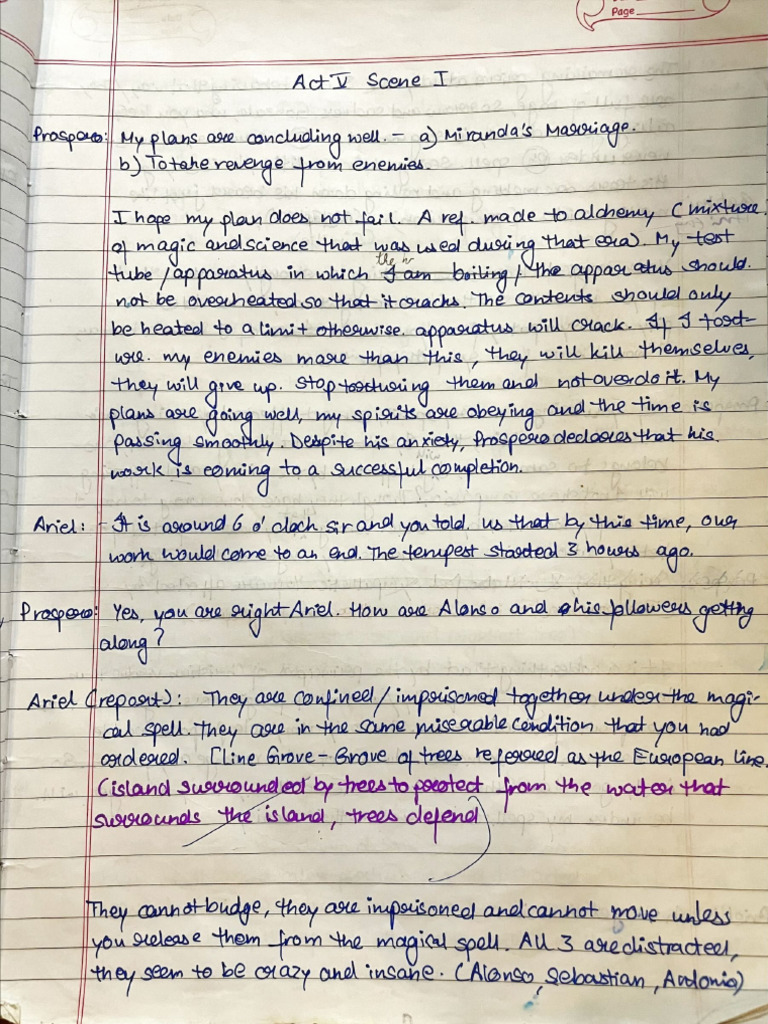 Page
Act V Scene I
Prospero: My plans are concluding well. - a) Miranda's Marriage.
b) To take revenge from enemies.
I hope my plan does not fail. A ref. made to alchemy (mixture
of magic and science that was used during that era). My test
tube/apparatus in which I am boiling, the apparatus should
not be overheated so that it cracks. The contents should only
be heated to a limit otherwise. apparatus will crack. If I tort-
ure. my enemies more than this, they will kill themselves,
they will give up. Stop torturing them and not overdo it. My
plans are going well, my spirits are obeying and the time is
passing smoothly. Despite his anxiety, Prospero declares that his
work is coming to a successful completion.
Ariel: - It is around 6 o' clock sir and you told us that by this time, our
work would come to an end. The tempest started 3 hours ago.
Prospero: Yes, you are right Ariel. How are Alonso and his followers getting
along?
Ariel (report): They are confined/imprisoned together under the magi-
cal spell. They are in the same miserable condition that you had
ordered. [Line Grove - Grove of trees referred as the European line.
(island surrounded by trees to protect from the water that
surrounds the island, trees defend)
They cannot budge, they are imprisoned and cannot move unless
you release them from the magical spell. All 3 are distracted,
they seem to be crazy and insane. (Alonso, Sebastian, Antonio)